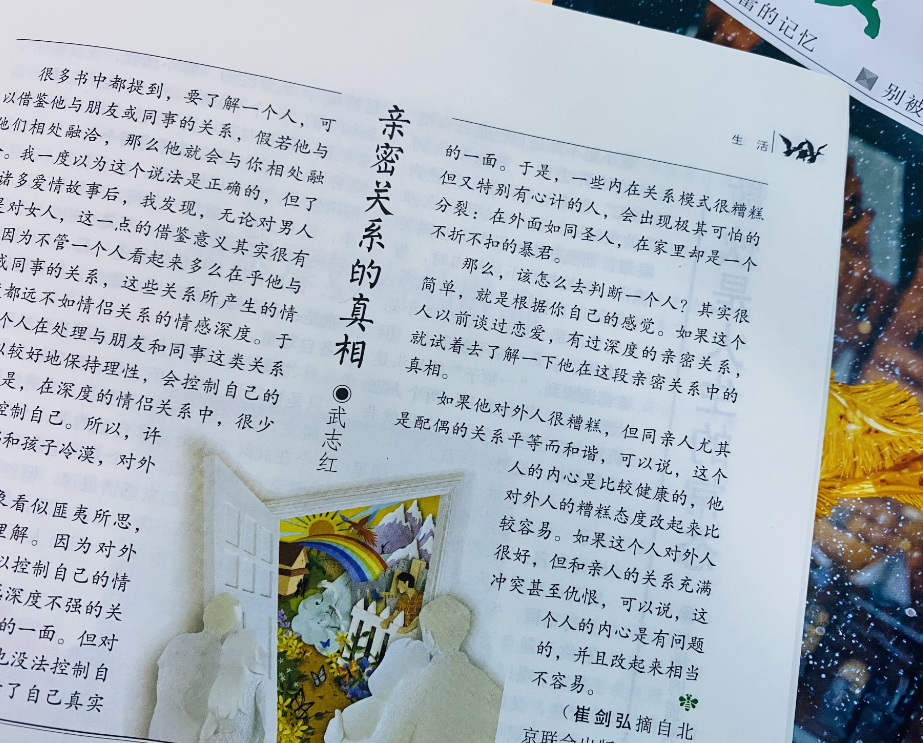 很多书中都提到，要了解一个人，可
以借鉴他与朋友或同事的关系，假若他与
他们相处融洽，那么他就会与你相处融
。我一度以为这个说法是正确的，但了
诸多爱情故事后，我发现，无论对男人
是对女人，这一点的借鉴意义其实很有
因为不管一个人看起来多么在乎他与
或同事的关系，这些关系所产生的情
都远不如情侣关系的情感深度。于
个人在处理与朋友和同事这类关系
以较好地保持理性，会控制自己的
是，在深度的情侣关系中，很少
控制自己。所以，许
和孩子冷漠，对外
象看似匪夷所思，
理解。因为对外
以控制自己的情
深度不强的关
的一面。但对
也没法控制自
了自己真实
亲密关系的真相
◉武志红
生活
的一面。于是，一些内在关系模式很糟糕
但又特别有心计的人，会出现极其可怕的
分裂：在外面如同圣人，在家里却是一个
不折不扣的暴君。
那么，该怎么去判断一个人？其实很
简单，就是根据你自己的感觉。如果这个
人以前谈过恋爱，有过深度的亲密关系，
就试着去了解一下他在这段亲密关系中的
真相。
如果他对外人很糟糕，但同亲人尤其
是配偶的关系平等而和谐，可以说，这个
人的内心是比较健康的，他
对外人的糟糕态度改起来比
较容易。如果这个人对外人
很好，但和亲人的关系充满
冲突甚至仇恨，可以说，这
个人的内心是有问题
的，并且改起来相当
不容易。
（崔剑弘摘自北
京联合出版
的记忆
别被